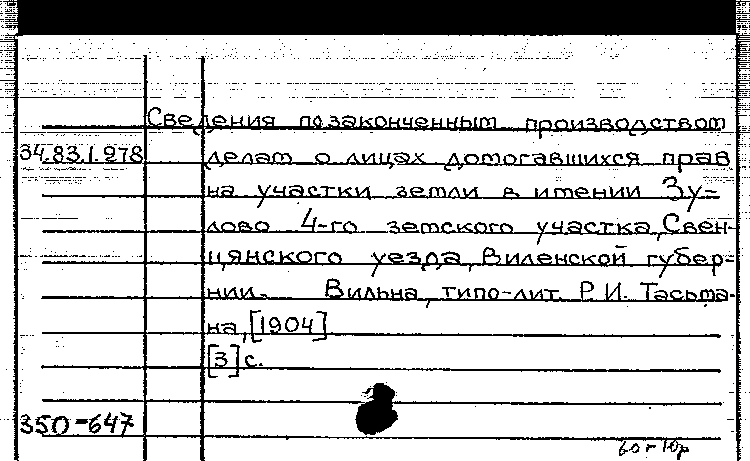 Сведения по законченным производством
34.83.1.278 делам о лицах домогавшихся прав
на участки земли в имении Зу-
лово 4-го земского участка, Свен-
цянского уезда, Виленской губер-
нии. Вильна, типо-лит. Р. И. Тасьма-
на, [1904]
[3] с.
350-647